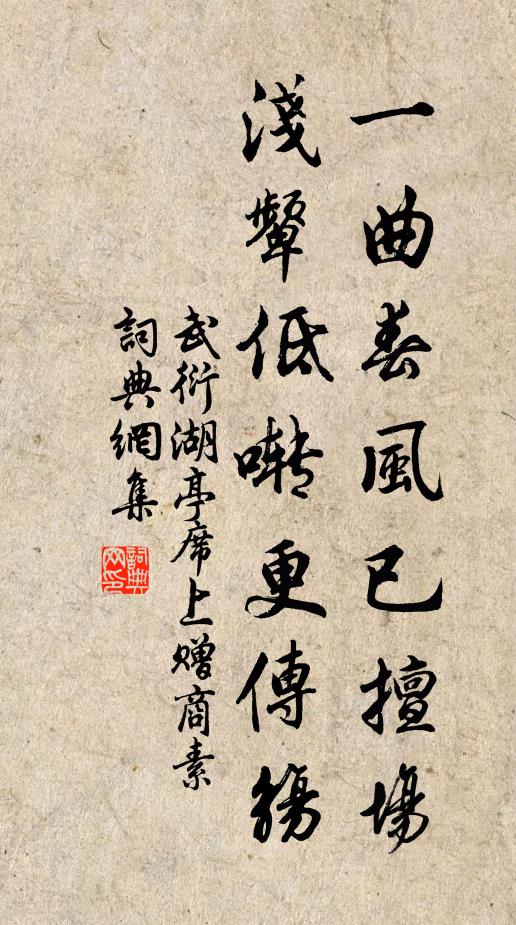 一曲春風已擅場
淺顰低囀更傳觴
武衍湖亭席上贈商素
詞典網集
詞典網印